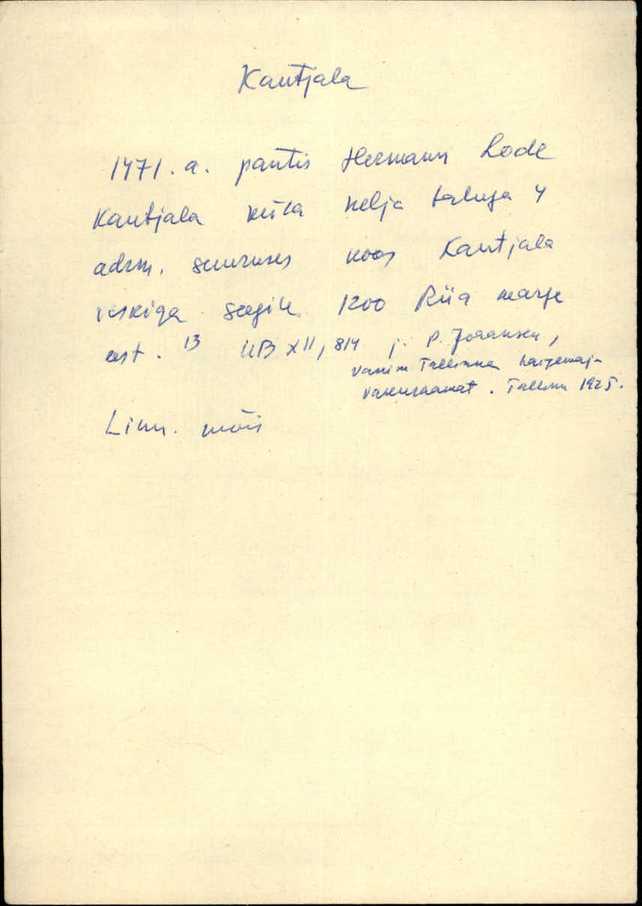 Kautjala
1471. a. pantis Hermann Lode
Kautjala küla nelja taluga 4
adrm. suuruses koos Kautjala
veskiga seegile 1200 Riia marga
eest. 13 UB XII, 814 j. P. Johansen,
Vanim Tallinna
Vakuraamat. Tallinn 1925.
Linn. mõis